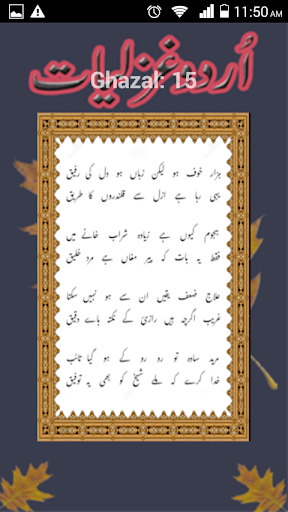 11:50 AM
اُردو غزلیات
Ghazal: 15
ہزار خوف ہو لیکن زباں ہو دل کی رفیق
یہی رہا ہے ازل سے قلندروں کا طریق
ہجوم کیوں ہے زیادہ شراب خانے میں
فقط یہ بات کہ پیر مغاں ہے مرد خلیق
علاج ضعف یقیں ان سے ہو نہیں سکتا
غریب اگرچہ ہیں رازی کے نکتہ ہاے دقیق
مرید سادہ تو رو رو کے ہو گیا تائب
خدا کرے کہ ملے شیخ کو بھی یہ توفیق